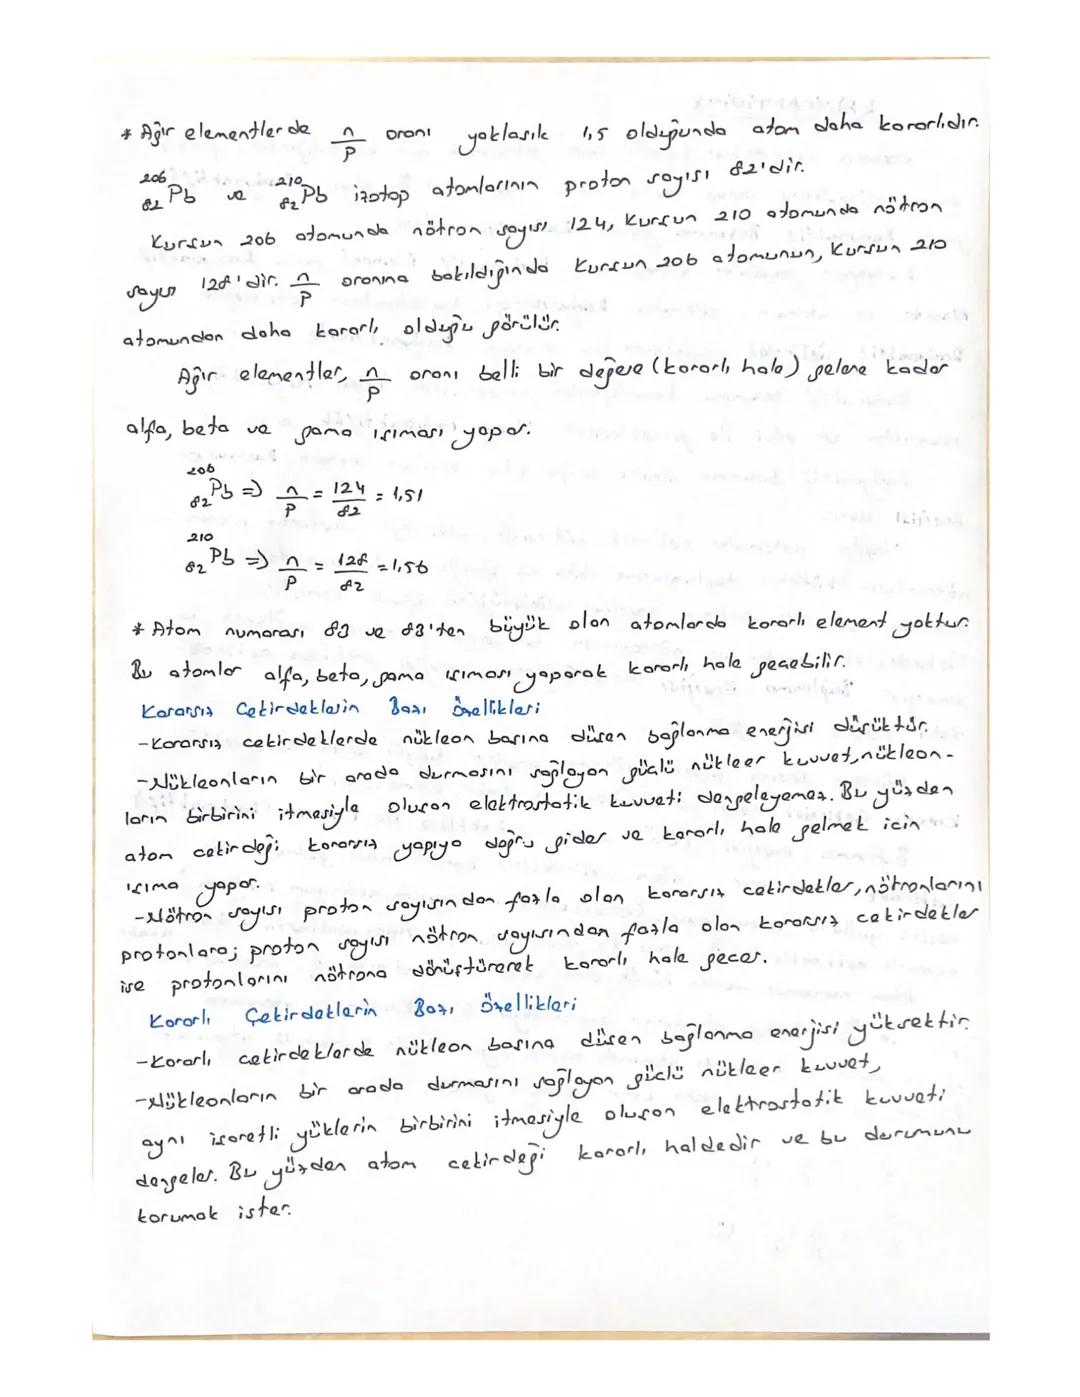 * Ağır elementlerde n/p oranı yaklaşık 1,5 olduğunda atom daha kararlıdır.
²⁰⁶₈₂Pb ve ²¹⁰₈₂Pb izotop atomlarının proton sayısı 82'dir.
Kurşun 206 atomunda nötron sayısı 124, Kurşun 210 atomunda nötron
sayısı 128'dir. n/p oranına bakıldığında Kurşun 206 atomunun, Kurşun 210
atomundan daha kararlı olduğu görülür.
Ağır elementler, n/p oranı belli bir değere (kararlı hale) gelene kadar
alfa, beta ve gama ışıması yapar.
²⁰⁶₈₂Pb => n/p = 124/82 = 1,51
²¹⁰₈₂Pb => n/p = 128/82 = 1,56
* Atom numarası 83 ve 83'ten büyük olan atomlarda kararlı element yoktur.
Bu atomlar alfa, beta, gama ışıması yaparak kararlı hale geçebilir.
Kararsız Çekirdeklerin Bazı Özellikleri
-Kararsız çekirdeklerde nükleon başına düşen bağlanma enerjisi düşüktür.
-Nükleonların bir arada durmasını sağlayan güçlü nükleer kuvvet, nükleon-
ların birbirini itmesiyle oluşan elektrostatik kuvveti dengeleyemez. Bu yüzden
atom çekirdeği kararsız yapıya doğru gider ve kararlı hale gelmek için
ışıma yapar.
-Nötron sayısı proton sayısından fazla olan kararsız çekirdekler, nötronlarını
protonlara; proton sayısı nötron sayısından fazla olan kararsız çekirdekler
ise protonlarını nötrona dönüştürerek kararlı hale geçer.
Kararlı Çekirdeklerin Bazı Özellikleri
-Kararlı çekirdeklerde nükleon başına düşen bağlanma enerjisi yüksektir.
-Nükleonların bir arada durmasını sağlayan güçlü nükleer kuvvet,
aynı işaretli yüklerin birbirini itmesiyle oluşan elektrostatik kuvveti
dengeler. Bu yüzden atom çekirdeği kararlı haldedir ve bu durumunu
korumak ister.